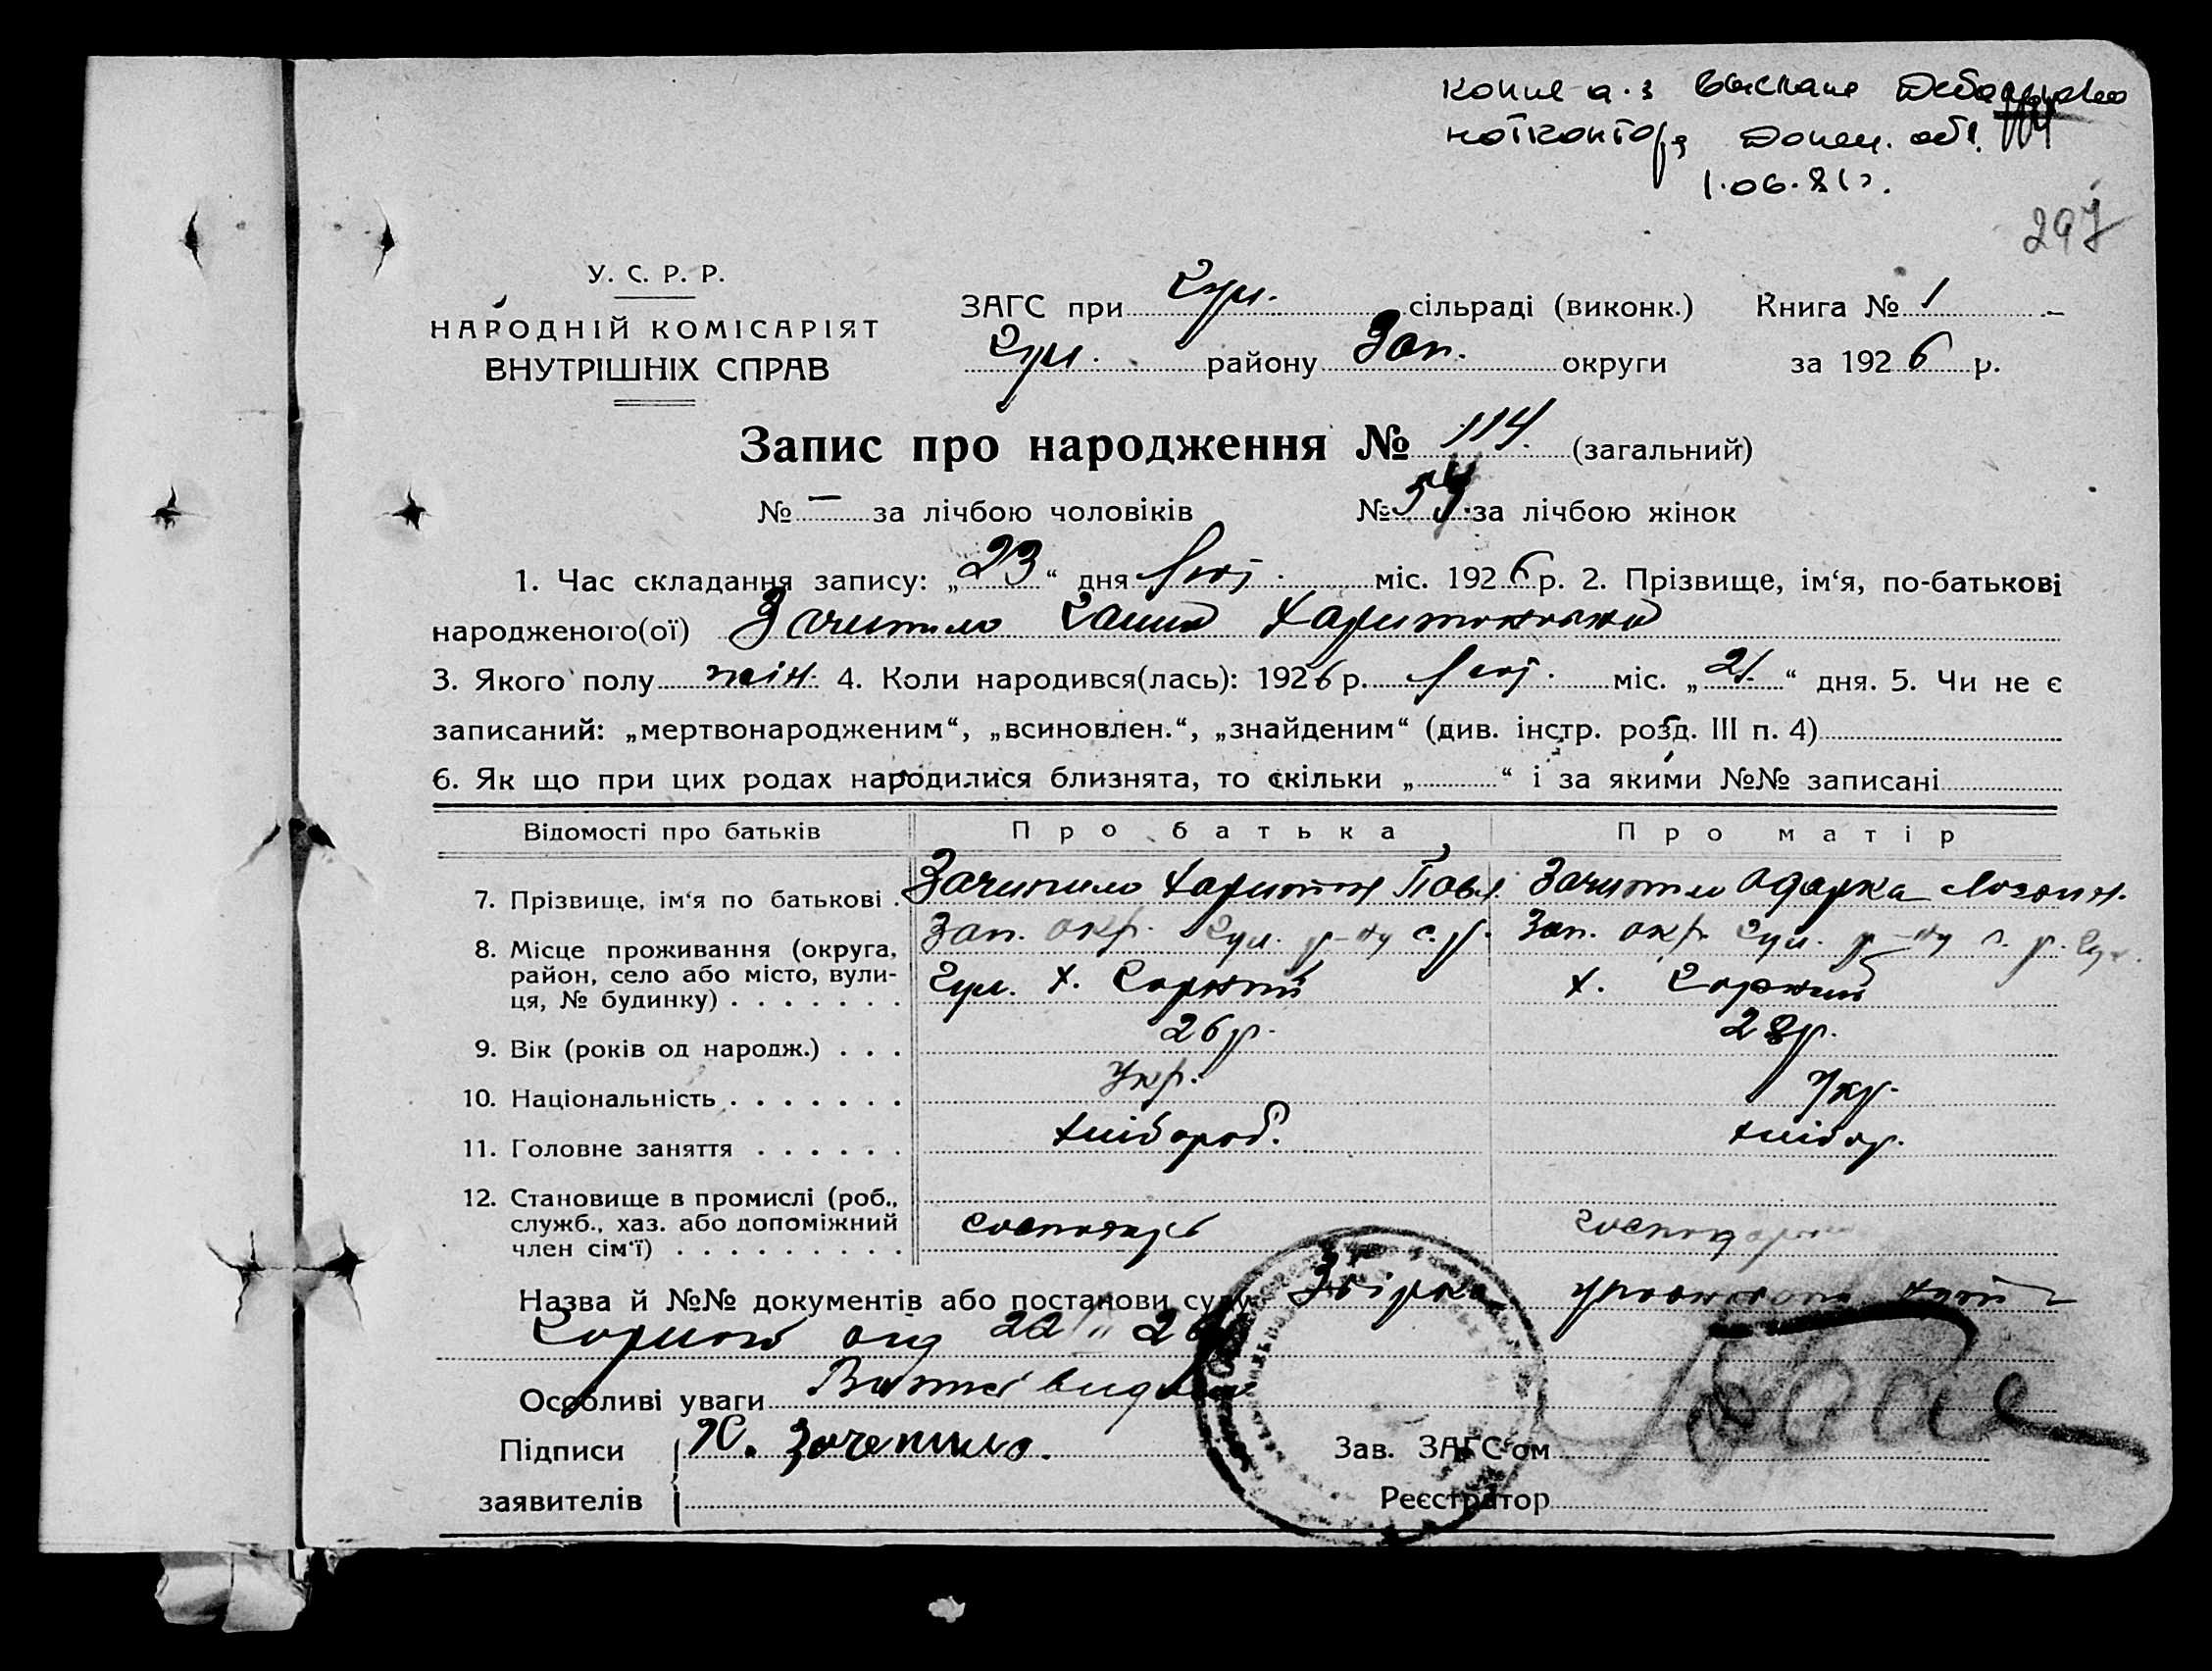 копие а.з выслане
нотконтора Донец. обл.
1.06.81г.
297
У. С. Р. Р.
НАРОДНІЙ КОМІСАРІЯТ
ВНУТРІШНІХ СПРАВ
ЗАГС при Гул. сільраді (виконк.) Книга № 1
Гул. району Зап. округи за 1926 р.
Запис про народження № 114. (загальний)
№ — за лічбою чоловіків № 54 за лічбою жінок
1. Час складання запису: „23“ дня Лют. міс. 1926 р. 2. Прізвище, ім‘я, по-батькові
народженого(ої) Зачипило Ганна Харитоновна
3. Якого полу жін. 4. Коли народився(лась): 1926 р. Лют. міс. „21.“ дня. 5. Чи не є
записаний: „мертвонародженим“, „всиновлен.“, „знайденим“ (див. інстр. розд. III п. 4)
6. Як що при цих родах народилися близнята, то скільки „ “ і за якими №№ записані
Відомості про батьків Про батька Про матір
7. Прізвище, ім‘я по батькові Зачипило Харитон Павл. Зачипило Одарка
8. Місце проживання (округа, район, село або місто, вулиця, № будинку) Зап. окр. Гул. р-ну с.р. Зап. окр. Гул. р-ну с. р. Гул.
Гул. х. Горький х. Горький
9. Вік (років од народж.) 26 р. 28 р.
10. Національність Укр. Укр.
11. Головне заняття хлібороб. хлібор.
12. Становище в промислі (роб., служб., хаз. або допоміжний член сім‘ї) господарь господарка
Назва й №№ документів або постанови суду
од 22/II 26
Особливі уваги
Підписи Х. Зачепило. Зав. ЗАГС‘ом
заявителів Реєстратор